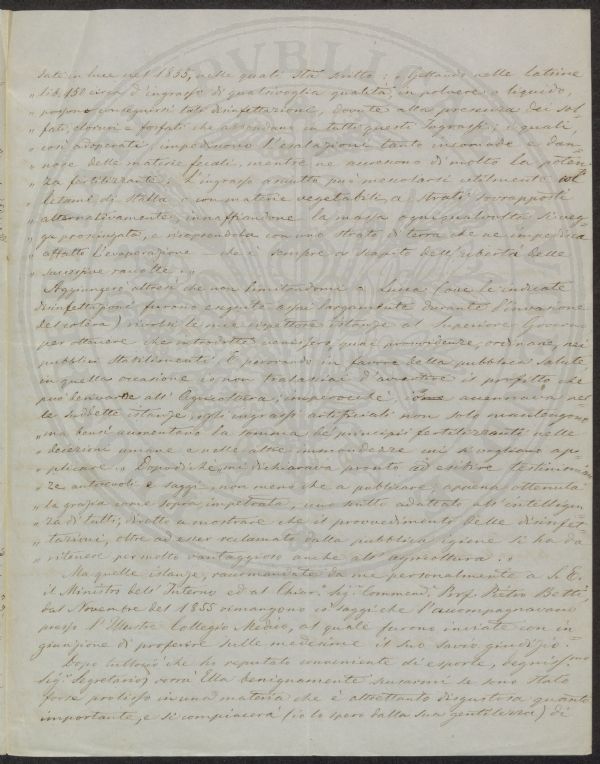 date in luce nel 1855, nelle quali sta scritto: „ Gettando nelle latrine
„ lib. 150 circa d'ingrasso di qualsivoglia qualità, in polvere o liquido,
„ possono conseguirsi tale disinfettazione, dovuta alla presenza dei sol-
„ fati, cloruri e fosfati che abbondano in tutti questi Ingrassi; i quali,
„ così adoperati, impediscono l'esalazioni tanto incomode e dan-
„ nose delle materie fecali, mentre ne accrescono di molto la poten-
„ za fertilizzante. L'ingrasso asciutto può mescolarsi utilmente col
„ letame di stalla o con materie vegetabili, a strati sovrapposti
„ alternativamente, innaffiandone la massa ogniqualvolta si veg-
„ ga prosciugata, e ricoprendola con uno strato di terra che ne impedisca
„ affatto l'evaporazione — che è sempre a scapito dell'ubertà delle
„ successive raccolte. „
Soggiungerò altresì che non limitandomi a Lucca (ove le indicate
disinfettazioni furono eseguite assai largamente durante l'invasione
del colera) rivolsi le mie rispettose istanze al Superiore Governo
per ottenere che introdotte venissero, quai provvidenze, ordinarie, nei
pubblici Stabilimenti. E perorando in favore della pubblica salute
in quella occasione io non tralasciai d'avvertire il profitto che
può derivare all'Agricoltura; imperocchè come accennava nel-
le suddette istanze „ gli ingrassi artificiali non solo mantengono
„ ma bensì aumentano la somma de' principii fertilizzanti nelle
„ deiezioni umane e nelle altre immondezze cui si vogliano ap-
„ plicare „. Dopodichè, mi dichiarava pronto ad esibire testimonian-
„ ze autorevoli e saggi, non meno che a pubblicare, appena ottenuta
„ la grazia come sopra impetrata, uno scritto adattato all'intelligen-
„ za di tutti, diretto a mostrare che il provvedimento delle disinfet-
„ tazioni, oltre ad esser reclamato dalla pubblica igiene si ha da
„ ritenere per molto vantaggioso anche all'agricoltura. „
Ma quelle istanze, raccomandate da me personalmente a S. E.
il Ministro dell'Interno ed al Chiar. Sig. Commend. Prof. Pietro Betti,
dal Novembre del 1855 rimangono coi saggi che l'accompagnavano
presso l'Illustre Collegio Medico, al quale furono inviate con in-
giunzione di proferire sulle medesime il suo savio giudizio.
Dopo tuttociò che ho reputato conveniente di esporle, degnissimo
Sig. Segretario, vorrà Ella benignamente scusarmi se sono stato
forse prolisso in una materia che è altrettanto disgustosa quanto
importante, e si compiacerà (io lo spero dalla sua gentilezza) di